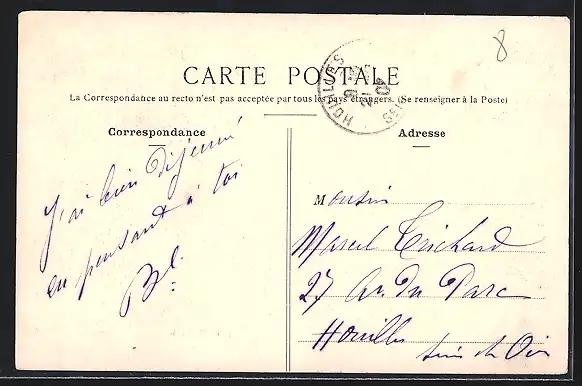 8
CARTE POSTALE
HOUILLES
La Correspondance au recto n'est pas acceptée par tous les pays étrangers. (Se renseigner à la Poste)
Correspondance
J'ai bien déjeuné
en pensant à toi
Adresse
Monsieur
Marcel Trichard
27 Av. du Parc
Houilles
Seine et Oise